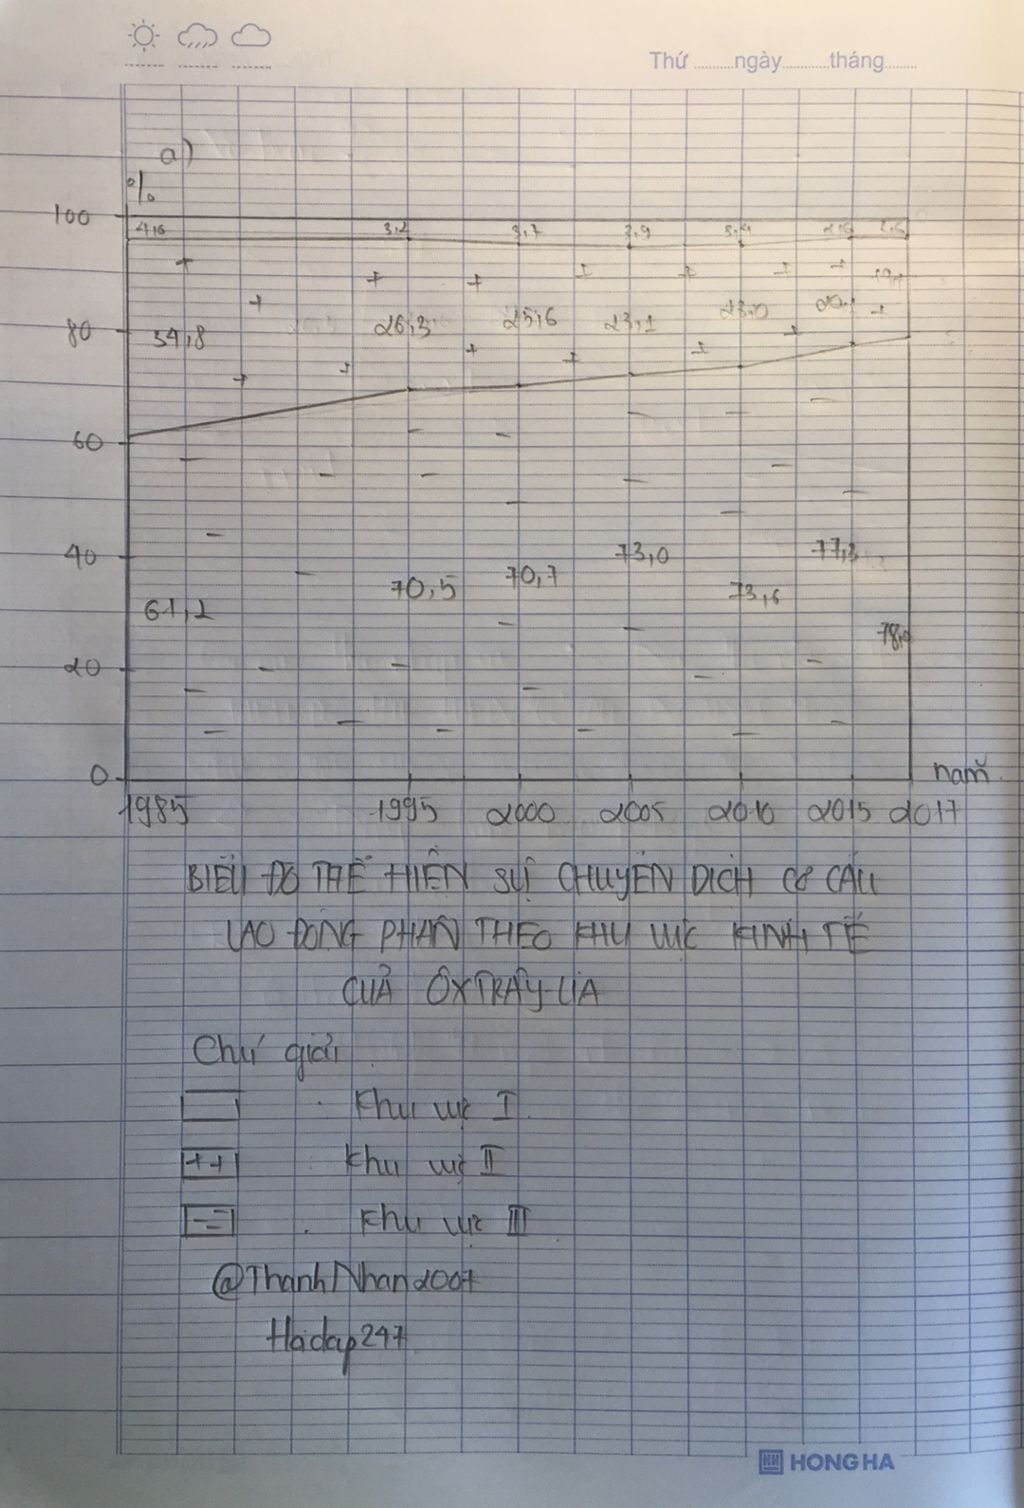 Thứ ........ngày..........tháng......
a)
%
100
4,6 3,2 3,7 3,9 3,4 2,6
80
34,8 26,3 25,6 23,1 23,0 20,1
60
40
73,0 77,3
70,5 70,7 73,6
61,2
20
0
năm
1985 1995 2000 2005 2010 2015 2017
BIỂU ĐỒ THỂ HIỆN SỰ CHUYỂN DỊCH CƠ CẤU
LAO ĐỘNG PHÂN THEO KHU VỰC KINH TẾ
CỦA ÔXTRÂY-LIA
Chú giải
Khu vực I
++ Khu vực II
Khu vực III
@ThanhNhan2007
Hoidap247
HONG HA